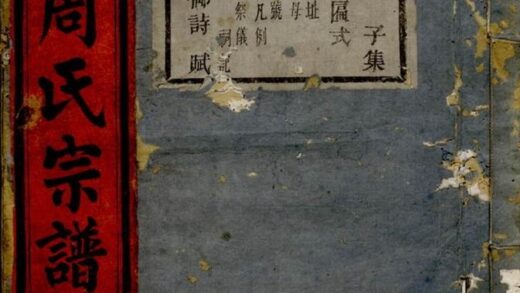 子集
匾式
址
凡例
祭儀
祠記
詩賦
周氏宗譜